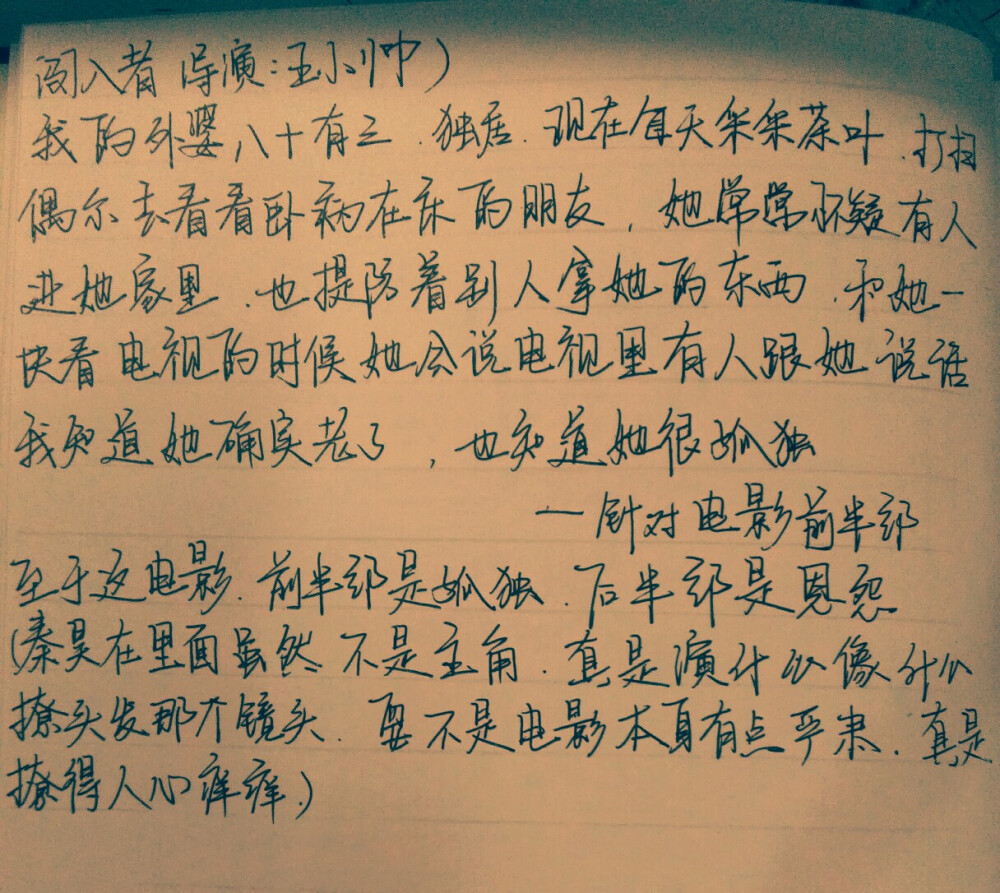 闯入者 导演:王小帅)
我的外婆八十有三.独居.现在每天采采茶叶.打扫
偶尔去看看卧病在床的朋友,她常常怀疑有人
进她家里.也提防着别人拿她的东西.和她一
块看电视的时候她会说电视里有人跟她说话
我知道她确实老了,也知道她很孤独
一针对电影前半部
至于这电影.前半部是孤独.后半部是恩怨
(秦昊在里面虽然不是主角.真是演什么像什么
撩头发那个镜头.要不是电影本身有点严肃.真是
撩得人心痒痒.)